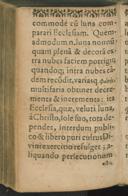 commodè cũ luna com-
parari Ecclesiam. Quem-
admodum n. luna nonnũ-
quam plena & decora es-
tra nubes faciem porrigit,
quandoq; intra nubes ca-
dem recõdit, variasq; ac
multifarias obtinet decre-
menta & incrementa: ita
Ecclesia, quæ, veluti luna,
à Christo, sole suo, tota de-
pendet, interdum publi-
cò & libero puri cultus Di-
vini exercitio refulget, a-
liquando persecutionum